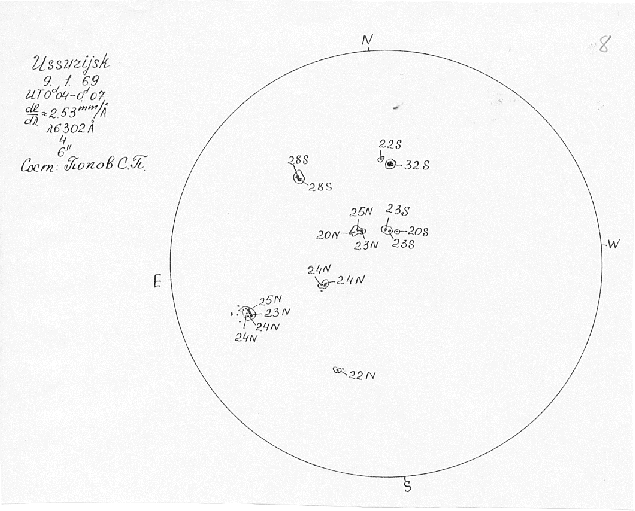 8
N
Ussurijsk
9. 1. 69
UT 0ʰ04-0ʰ07
dl/dλ = 2.53 mm/Å
λ6302Å
4
6"
Сост. Попов С.П.
22S
32S
28S
28S
25N
23S
20N
20S
23N
23S
W
24N
24N
E
25N
23N
24N
24N
22N
S